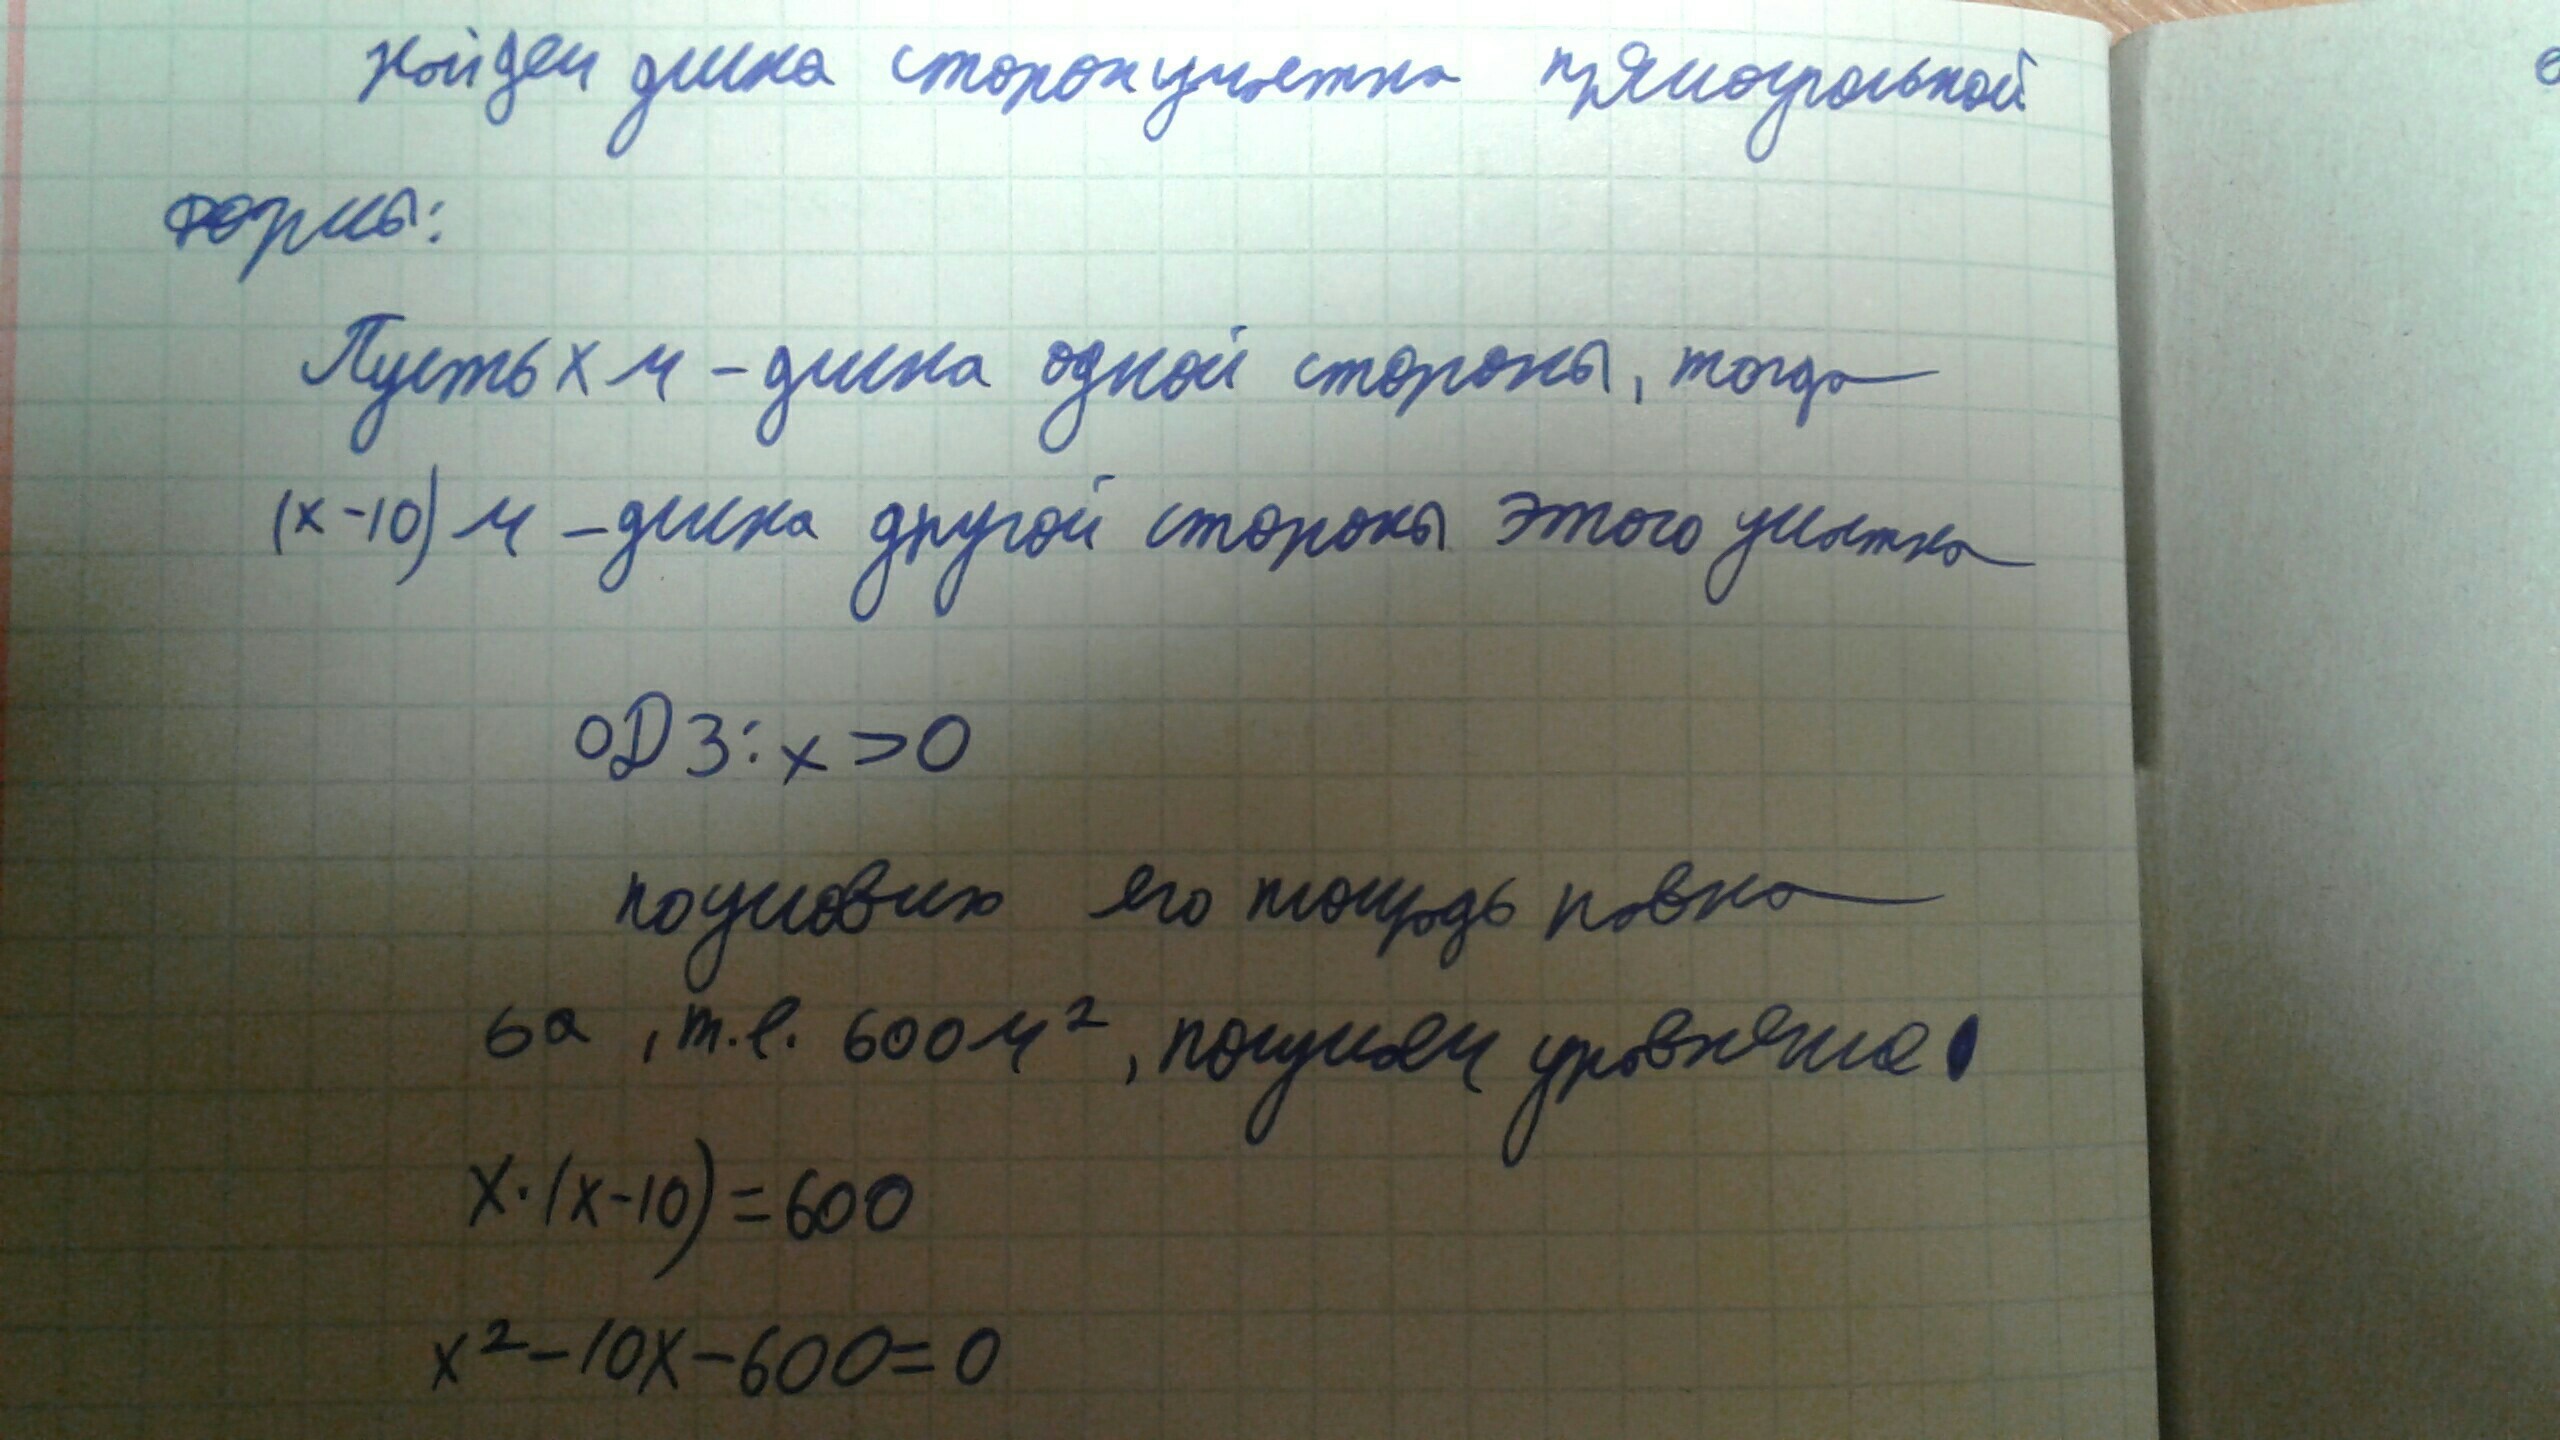 найдем длина сторон участка прямоугольной
формы:
Пусть x м - длина одной стороны, тогда
(x-10) м - длина другой стороны этого участка
ОДЗ: x > 0
по условию его площадь равна
6а, т.е. 600 м², получаем уравнение
x·(x-10) = 600
x² - 10x - 600 = 0